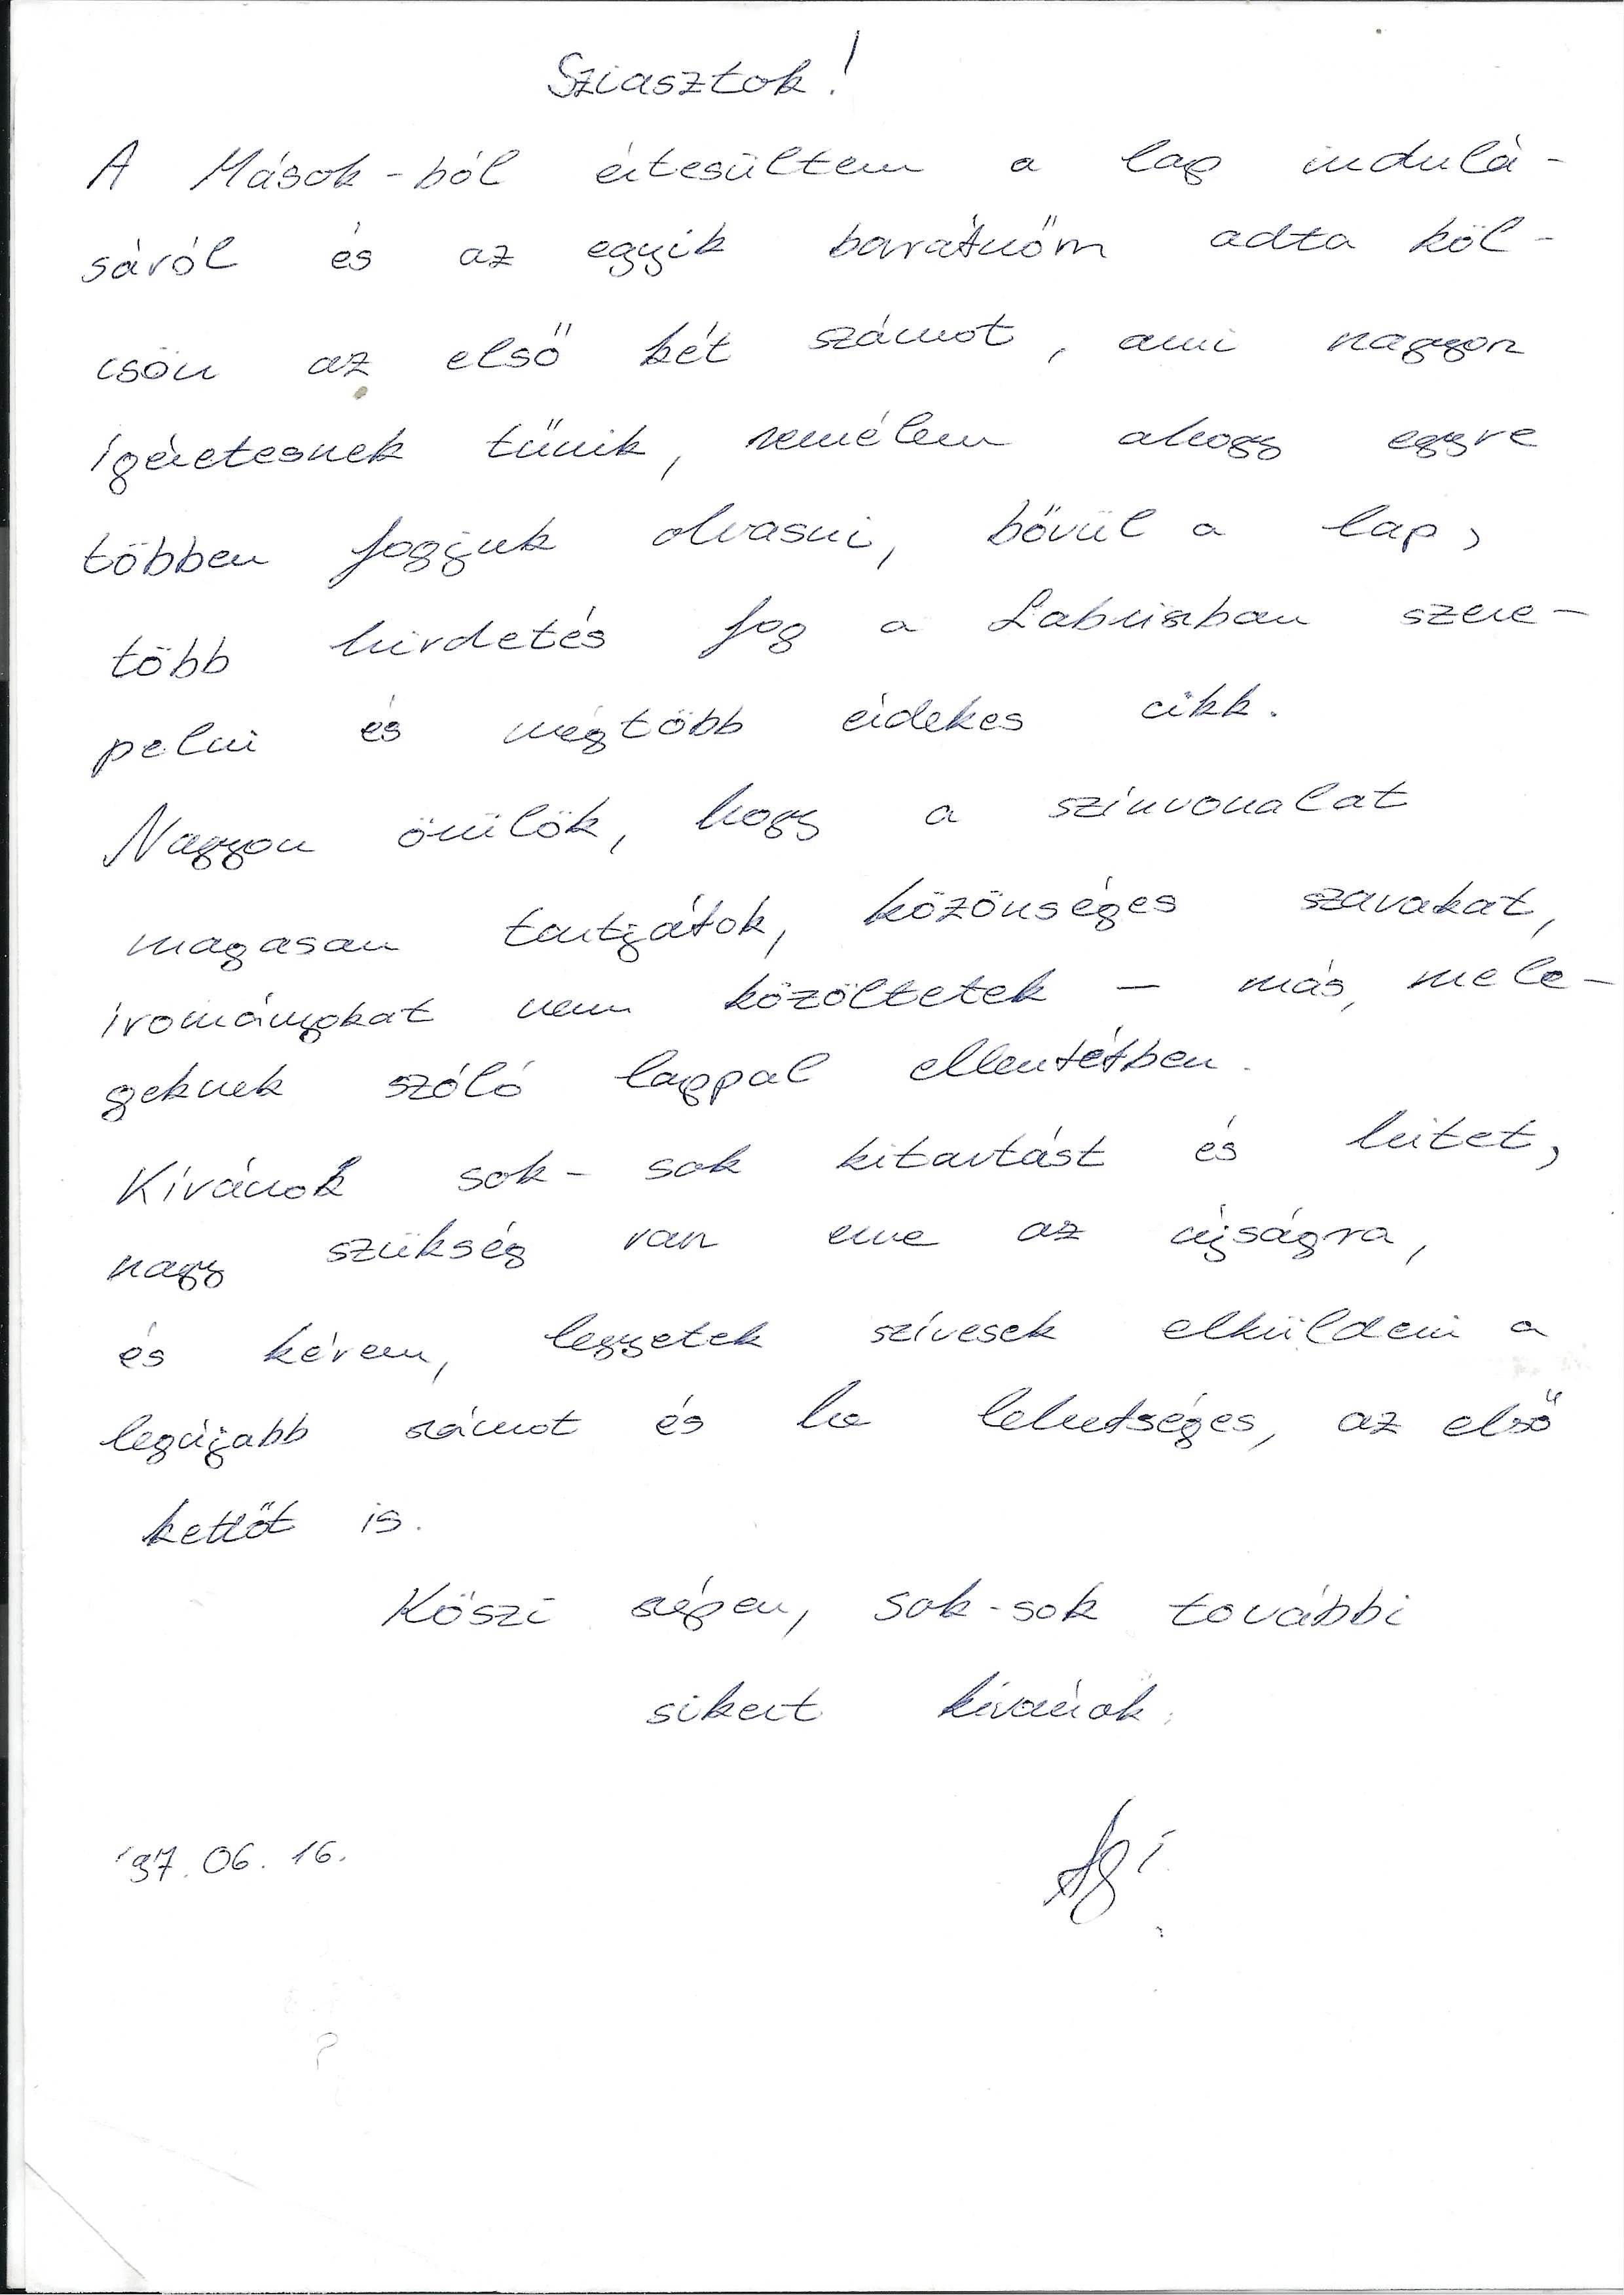 Sziasztok!
A Mások-ból értesültem a lap indulá-
sáról és az egyik barátnőm adta köl-
csön az első két számot, ami nagyon
ígéretesnek tűnik, remélem ahogy egyre
többen fogjuk olvasni, bővül a lap,
több hirdetés fog a Labriszban szere-
pelni és mégtöbb érdekes cikk.
Nagyon örülök, hogy a színvonalat
magasan tartjátok, közönséges szavakat,
irományokat nem közöltetek - más, mele-
geknek szóló lappal ellentétben.
Kívánok sok-sok kitartást és hitet,
nagy szükség van erre az újságra,
és kérem, legyetek szívesek elküldeni a
legújabb számot és ha lehetséges, az első
kettőt is.
Köszi szépen, sok-sok további
sikert kívánok.
'97. 06. 16.
Ági